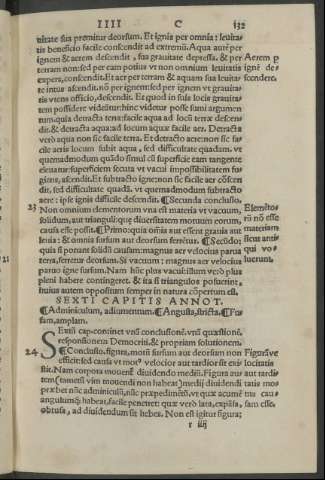 IIII C 132
uitate sua premitur deorsum. Et ignis per omnia: leuita-
tis beneficio facile conscendit ad extremũ. Aqua autẽ per
ignem & aerem descendit, sua grauitate depressa. & per
terram non: sed per eam potius vt non omnium leuitatis
expers, conscendit. Et aer per terram & aquam sua leuita-
te intus ascendit. nõ per ignem: sed per ignem vt grauita-
tis vtens officio, descendit. Et quod in suis locis grauita-
tem possidere videntur: hinc videtur posse sumi argumen-
tum. quia detracta terra: facile aqua ad locũ terræ descen-
dit. & detracta aqua: ad locum aquæ facile aer. Detracta
verò aqua non sic facile terra. Et detracto aere: non sic fa-
cile aeris locum subit aqua, sed difficultate quadam. vt
quemadmodum quãdo simul cũ superficie eam tangente
eleuatur: superficiem secuta vt vacui impossibilitatem fu-
giens, ascendit. Et subtracto igne: non sic facile aer cõscen
dit, sed difficultate quadã. vt quemadmodum subtracto
aere: ipse ignis difficile descendit. ¶Secunda conclusio.
Non omnium elementorum vna est materia vt vacuum,
solidum, aut triangulusq; diuersitatem motuum eorum,
causa esse possit. ¶Primo: quia omnia aut essent grauia aut
leuia: & omnia sursum aut deorsum ferētur. ¶Secũdo;
quia si ponunt solidũ causam: magnus aer velocius parua
terra, ferretur deorsum. Si vacuum: magnus aer velocius
paruo igne sursum. Nam huc plus vacui: illum verò plus
pleni habere contingeret. & ita si triangulos posuerint,
huius autem oppositum semper in natura cõpertum est.
SEXTI CAPITIS ANNOT.
¶Adminiculum, adiumentum. ¶Angusta, stricta. ¶Fu-
sam, amplam.
Sextũ cap. continet vnã conclusionẽ. vnũ quæstionẽ.
responsionem Democriti, & propriam solutionem.
¶Conclusio. figura, motũ sursum aut deorsum non
efficit: sed causa vt mot⁹ velocior aut tardior sit exi-
stit. Nam corpora mouent diuidendo mediũ. Figura au-
tem (tametsi vim mouendi non habeat) medij diuidendi
præber nũc adminiculũ, nũc præpedimētũ. vt quæ acumē
angulumq; habeat, facile penetret: quæ verò lata, expãsa,
obtusa, ad diuidendum sit hebes. Non est igitur figura;
r iiij
Aerem p
ignẽ de-
scendere.
23
Elemēto-
rũ nõ esse
materiam
sicut anti-
qui vo-
luerunt.
24
Figurã ve
locitatis
aut tardi-
tatis mo-
tus cau-
sam esse.